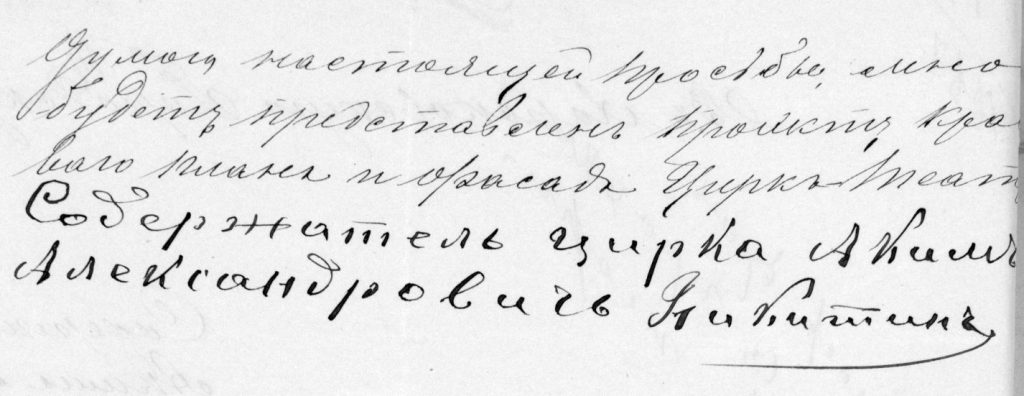 думая настоящей просьбы, мною
будетъ представленъ проэктъ кра
ваго плана и фасадъ Цирка-Театр
Содержатель цирка Акимъ
Александровичь Никитинъ